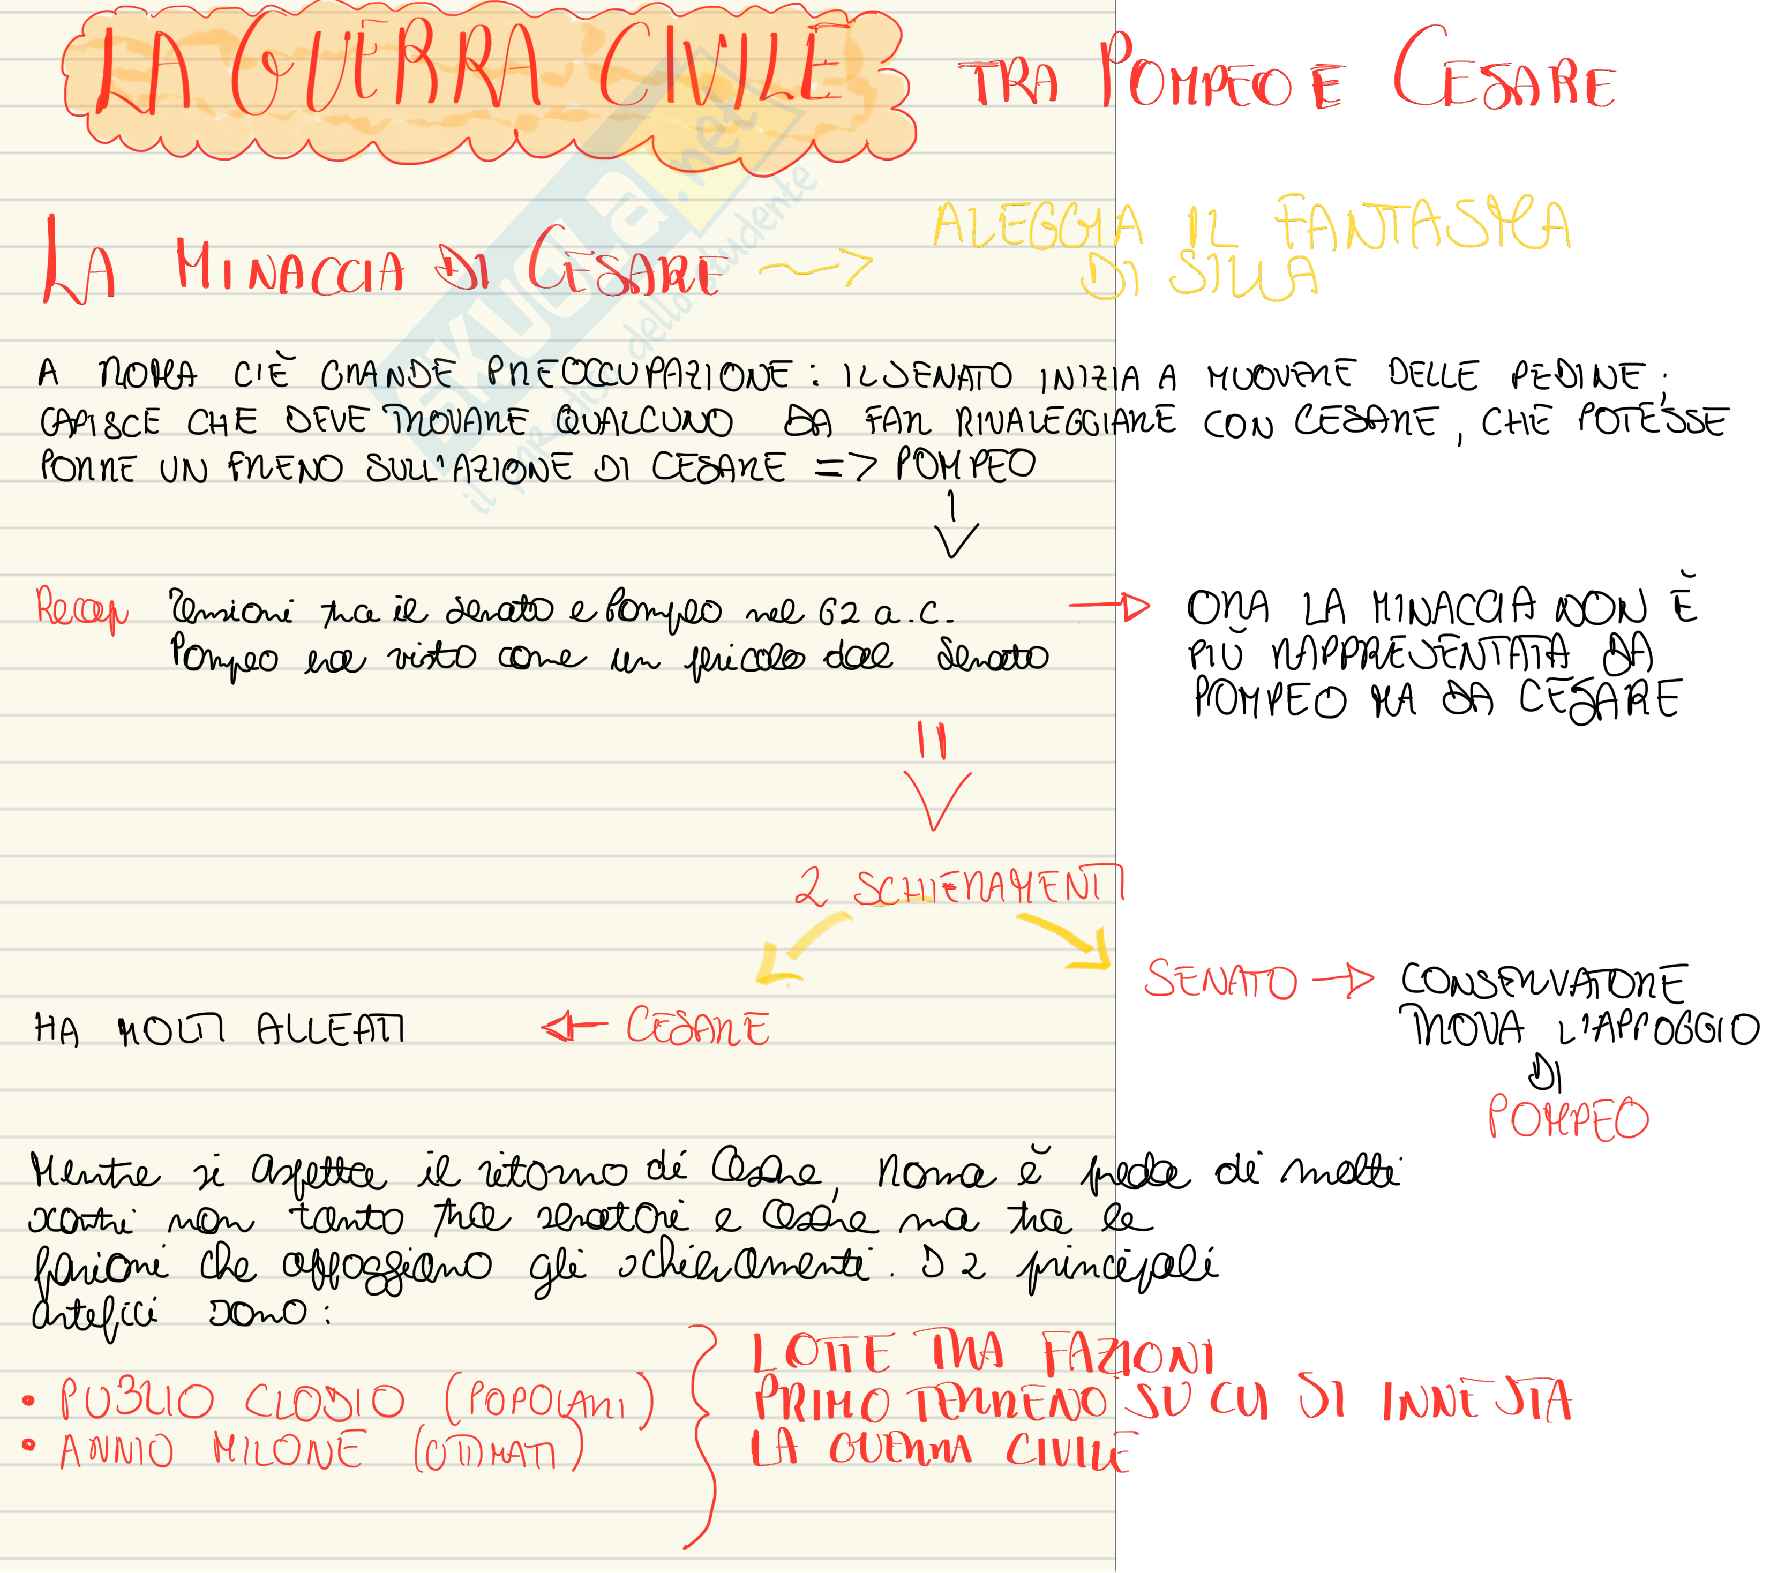 LA GUERRA CIVILE TRA POMPEO E CESARE
LA MINACCIA DI CESARE ~> ALEGGIA IL FANTASMA
DI SILLA
A ROMA C'È GRANDE PREOCCUPAZIONE: IL SENATO INIZIA A MUOVERE DELLE PEDINE;
CAPISCE CHE DEVE TROVARE QUALCUNO DA FAR RIVALEGGIARE CON CESARE, CHE POTESSE
PORRE UN FRENO SULL'AZIONE DI CESARE => POMPEO
Recap Tensioni tra il senato e Pompeo nel 62 a.C. → ORA LA MINACCIA NON È
Pompeo era visto come un pericolo dal Senato PIÙ RAPPRESENTATA DA
POMPEO MA DA CESARE
2 SCHIERAMENTI
SENATO → CONSERVATORE
HA MOLTI ALLEATI ← CESARE TROVA L'APPOGGIO
DI
POMPEO
Mentre si aspetta il ritorno di Cesare, Roma è preda di molti
scontri non tanto tra senatori e Cesare ma tra le
fazioni che appoggiano gli schieramenti. I 2 principali
artefici sono:
• PUBLIO CLODIO (POPOLARI)
• ANNIO MILONE (OTTIMATI)
LOTTE TRA FAZIONI
PRIMO TERRENO SU CUI SI INNESTA
LA GUERRA CIVILE
SKUOLA.net
il dello studente